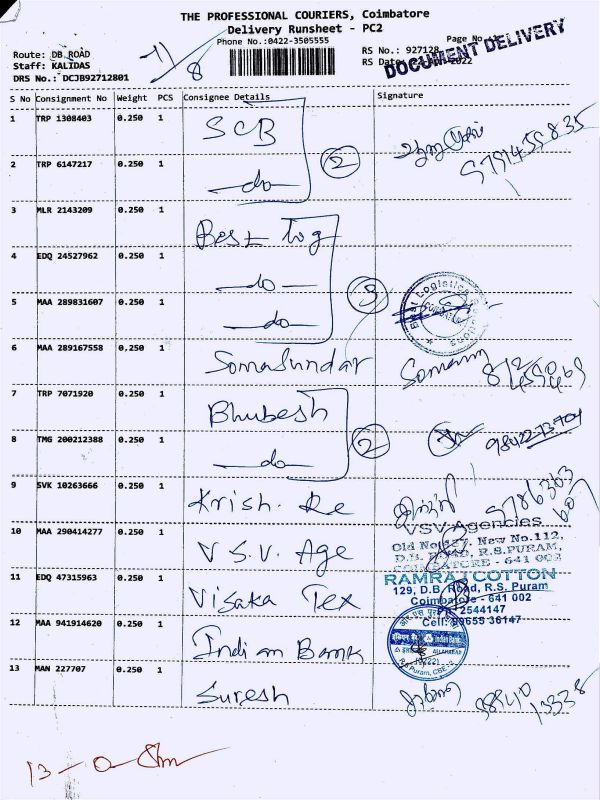 THE PROFESSIONAL COURIERS, Coimbatore
Delivery Runsheet - PC2
Phone No.:0422-3505555
Page No
Route: DB ROAD
Staff: KALIDAS
DRS No.: DCJB92712801
-1/8
RS No.: 927128
RS Date
2022
DOCUMENT DELIVERY
S No Consignment No Weight PCS Consignee Details Signature
1 TRP 1308403 0.250 1 SCB
2 TRP 6147217 0.250 1 -do-
2
3 MLR 2143209 0.250 1 Best log
4 EDQ 24527962 0.250 1 -do-
5 MAA 289831607 0.250 1 -do-
3
6 MAA 289167558 0.250 1 Somasundar
7 TRP 7071920 0.250 1 Bhubesh
8 TMG 200212388 0.250 1 -do-
2
9 SVK 10263666 0.250 1 Krish. Re
10 MAA 290414277 0.250 1 V.S.V. Age
VSV Agencies
Old No.127, New No.112,
D.B. ROAD, R.S.PURAM,
COIMBATORE - 641 002
11 EDQ 47315963 0.250 1 Visaka Tex
RAMRAJ COTTON
129, D.B. Road, R.S. Puram
Coimbatore - 641 002
2544147
Cell: 99655 36147
12 MAA 941914620 0.250 1 Indian Bank
Indian Bank
ALLAHABAD
R.S Puram, CBE-2
13 MAN 227707 0.250 1 Suresh
13-0-